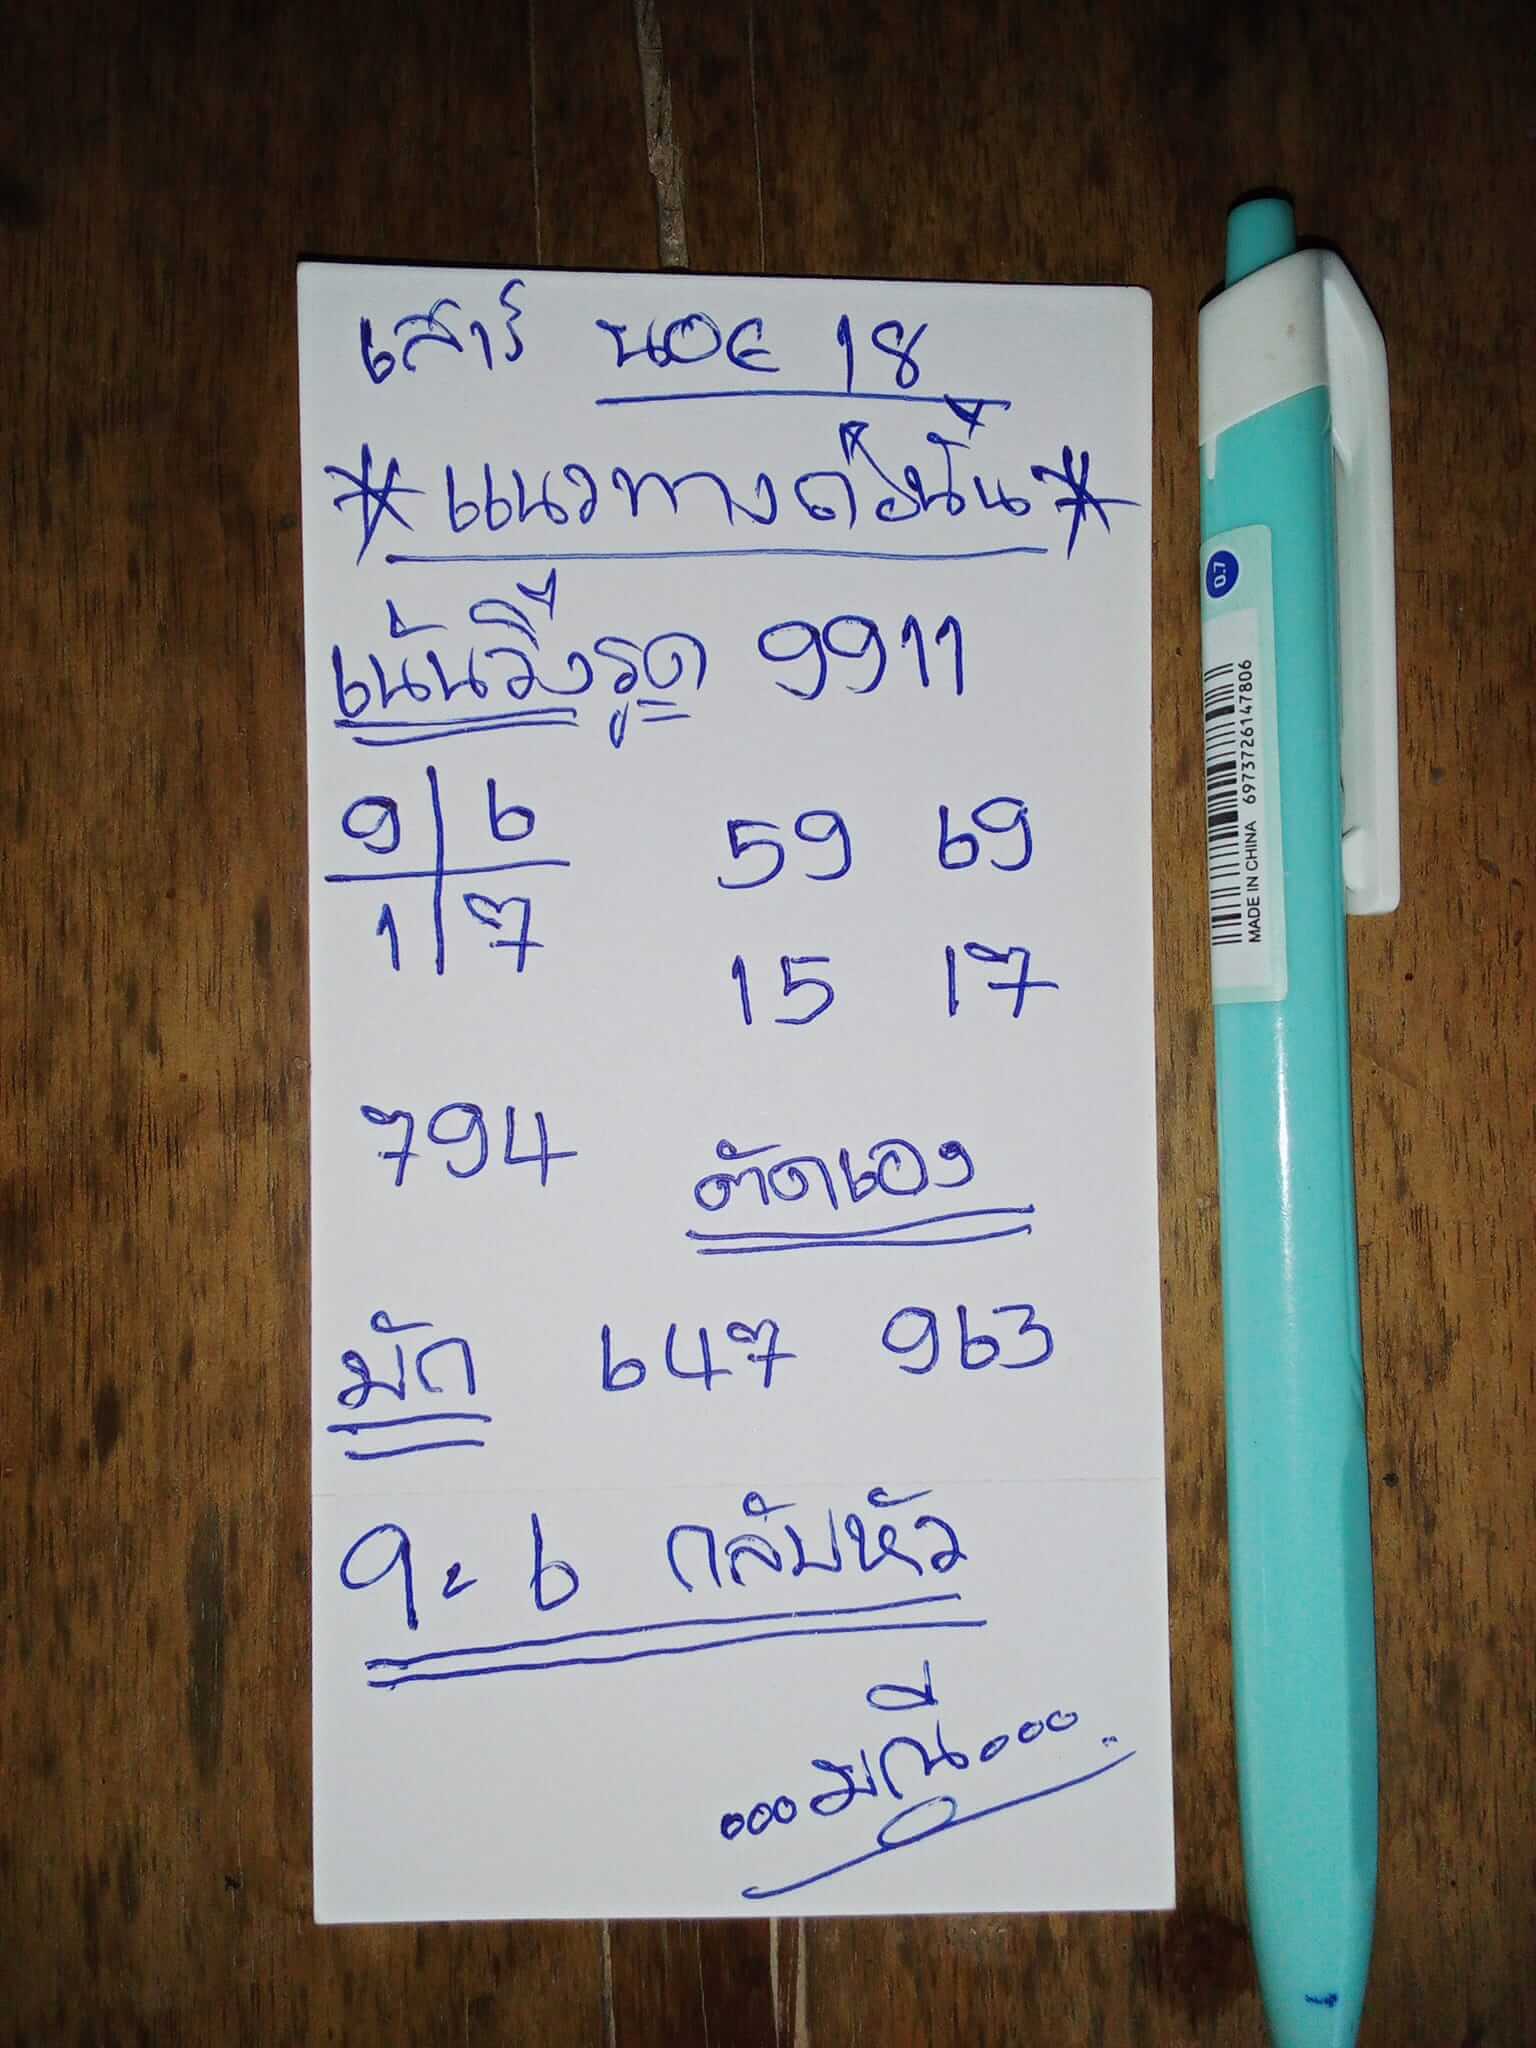 เสาร์ นอย 18
* แนวทางเท่านั้น *
เน้นวิ่งรูด 9911
9 6
1 7
59 69
15 17
794 ตัดเอง
มัก 647 963
9 = 6 กลับหัว
...มณี...
0.7
MADE IN CHINA 6973726147806